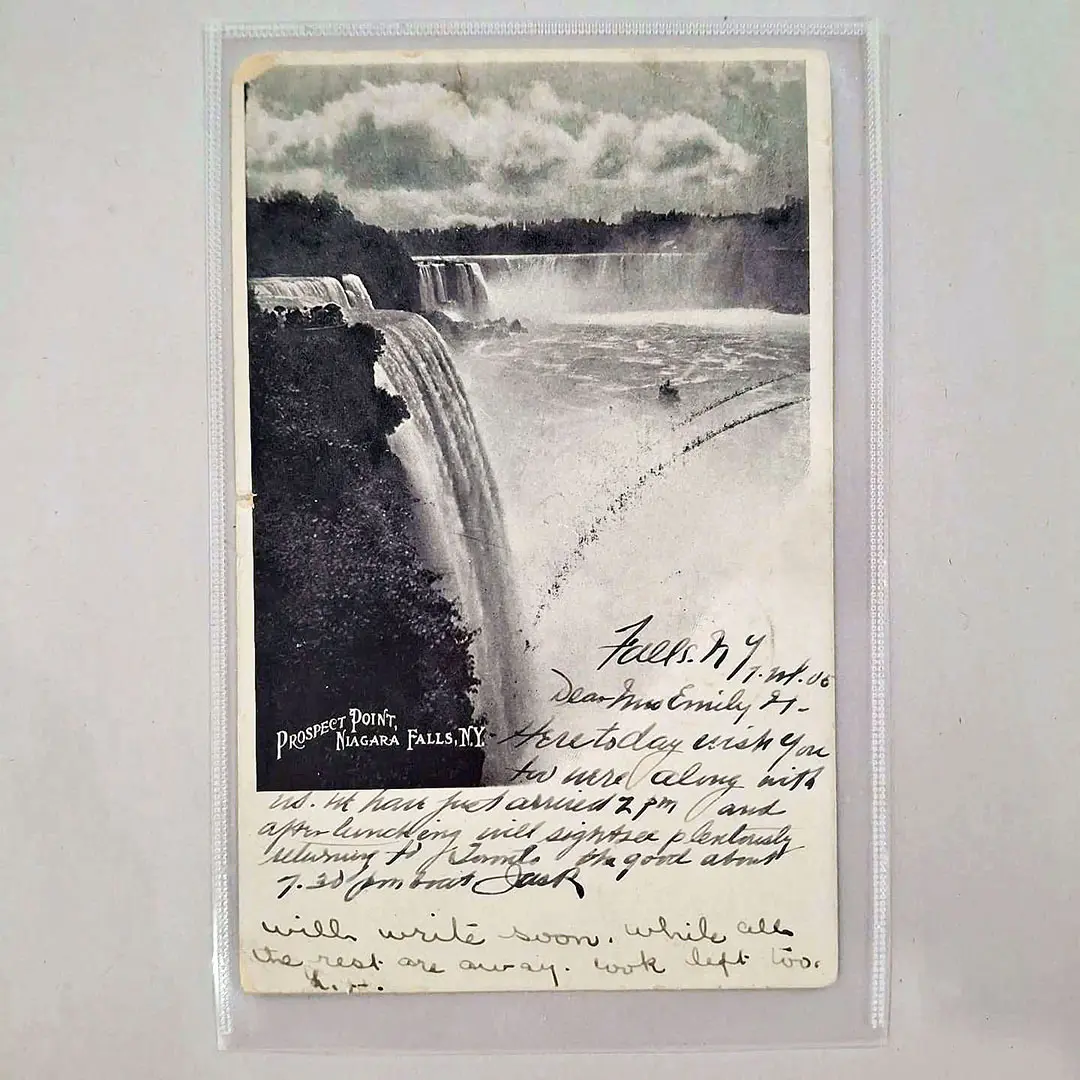 PROSPECT POINT,
NIAGARA FALLS, N.Y.
Falls. N Y
Dear Mrs Emily H-
Here today wish you
too were along with
us. We have just arrived 2 pm and
after lunching will sightsee plenteously
returning to Toronto the good about
7.30 pm boat Jack
will write soon. while all
the rest are away. cook left too.